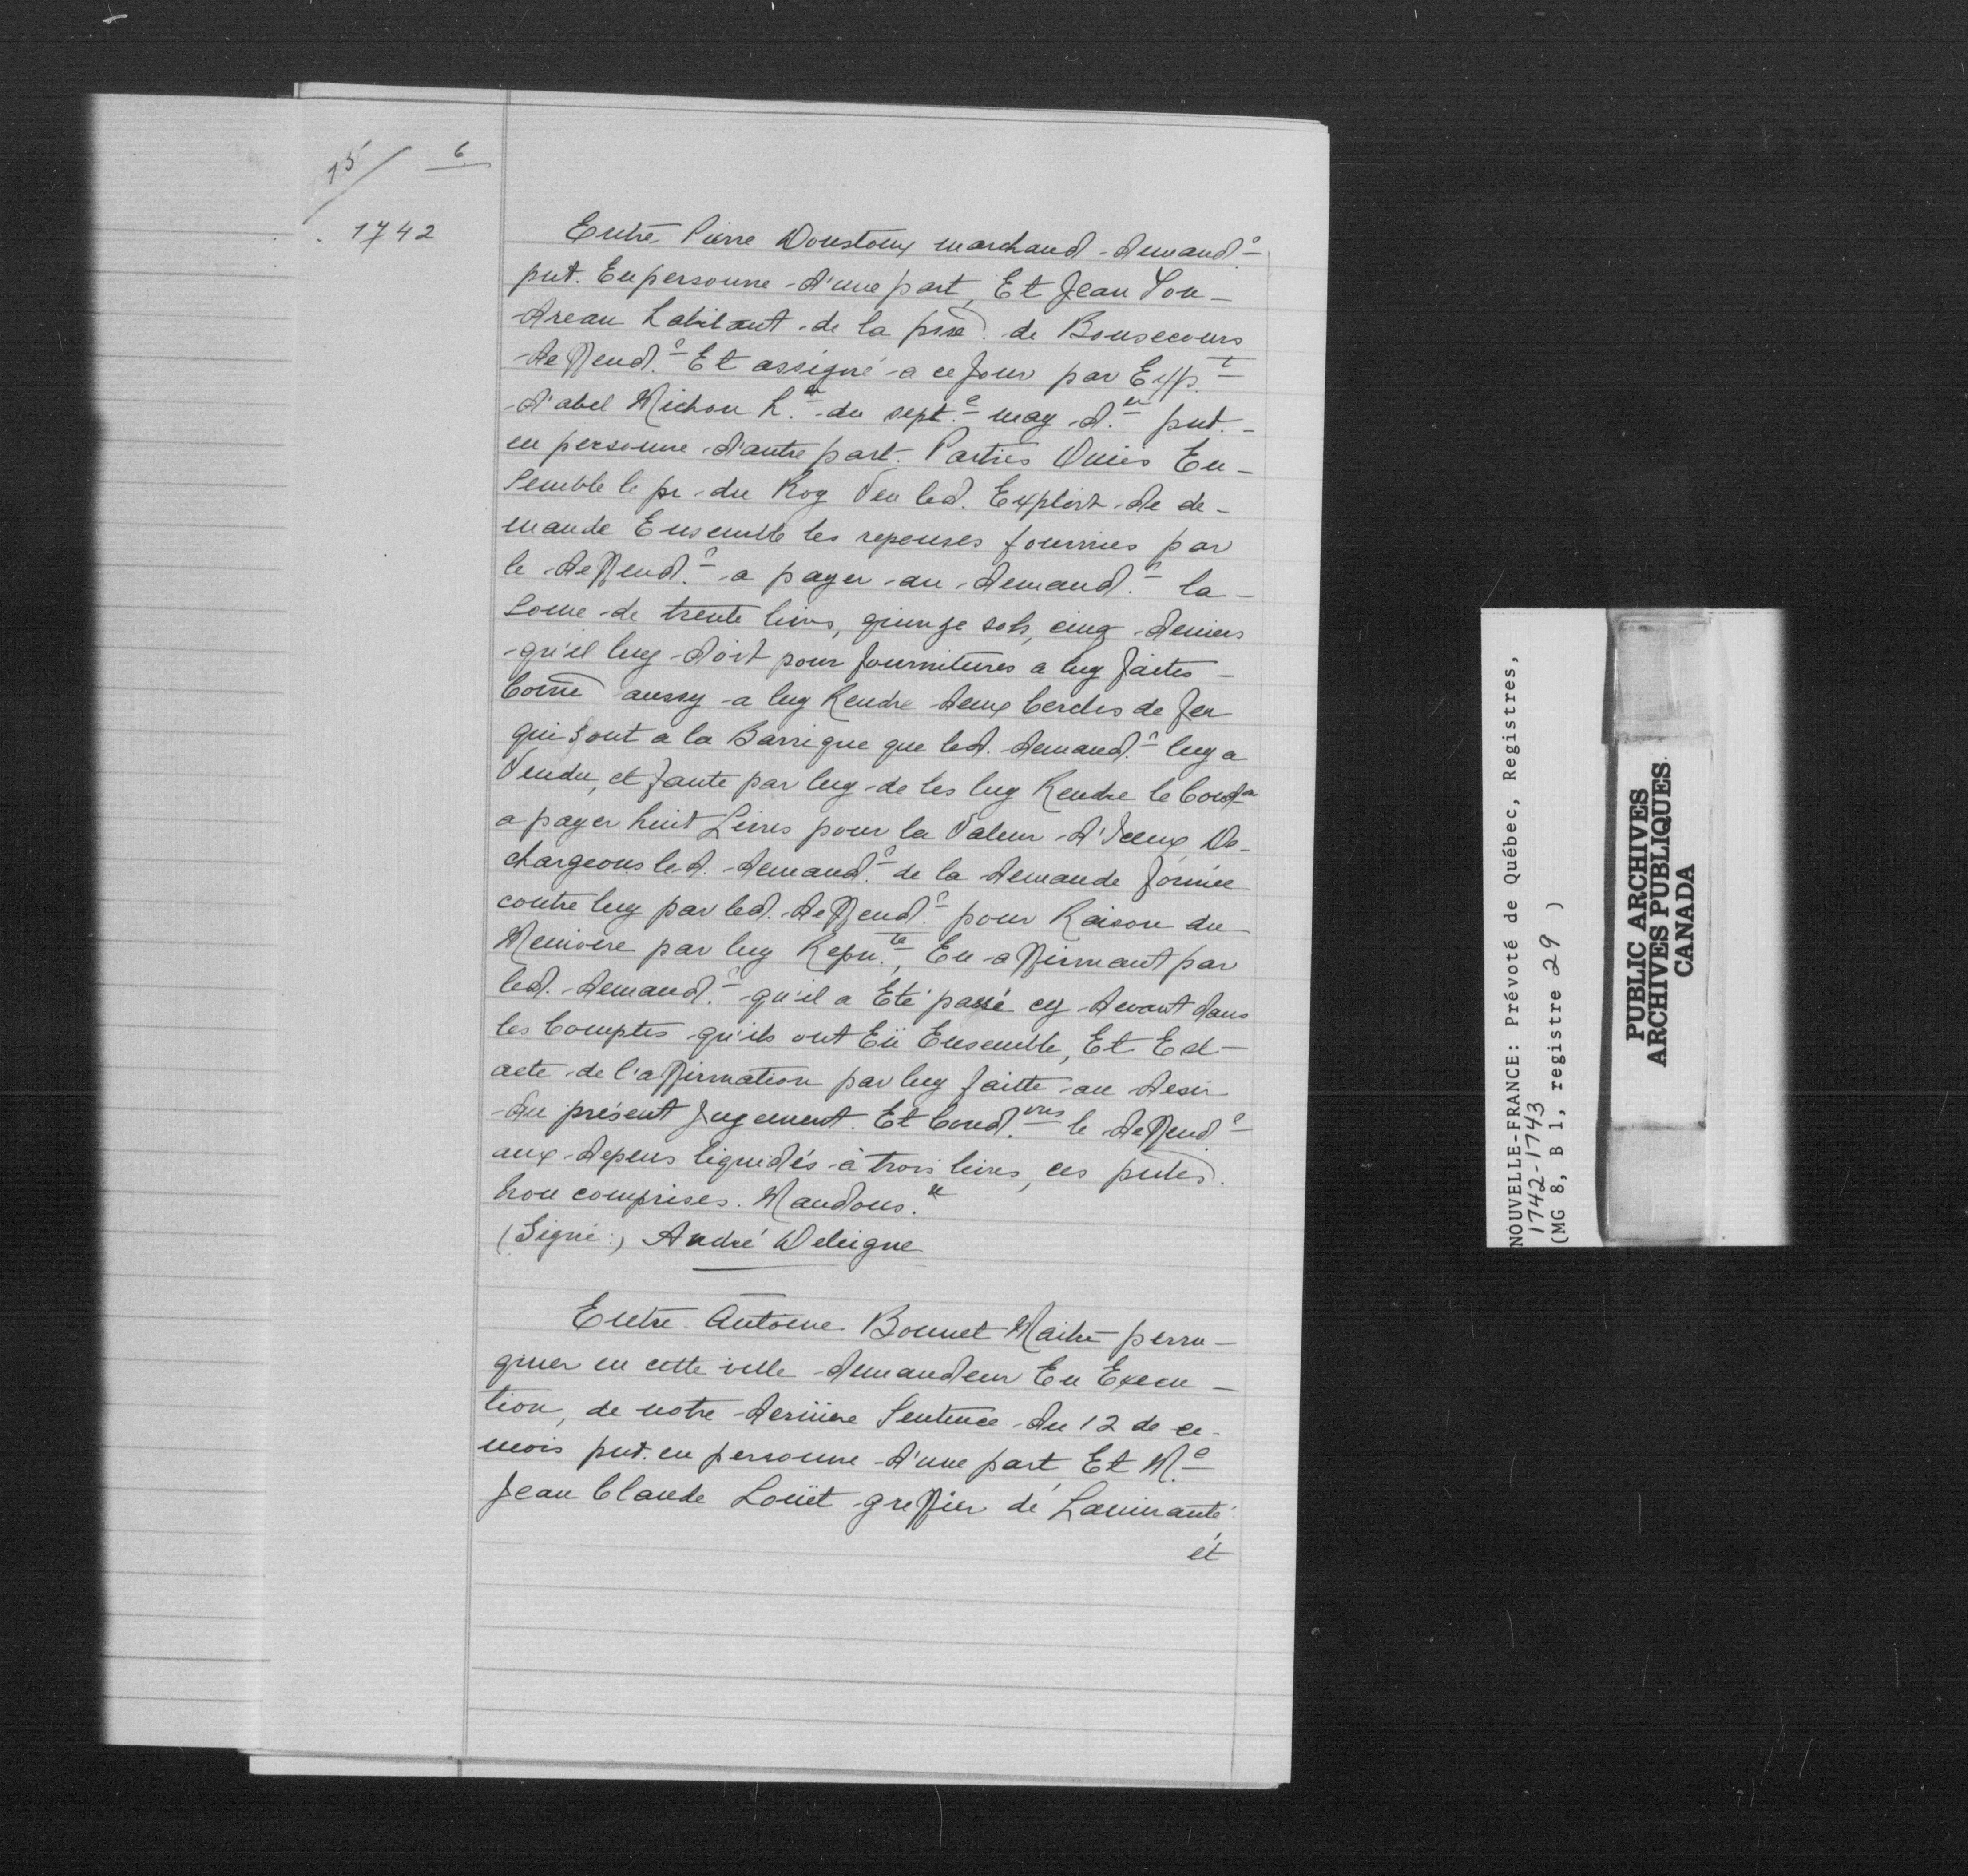 15/ 6
1742
Entre Pierre Doustoux marchand demand.r
pnt. En personne d'une part, Et Jean Ton-
dreau habitant de la psse. de Bonsecours
deffend.r Et assigné a ce Jour par Exp.t
d'abel Michon h.er du sept.e may d.er pnt.
en personne d'autre part. Parties Ouies En-
semble le pr. du Roy Veu led. Exploit de de-
mande Ensemble les reponses fournies par
le deffend.r a payer au demand.r la
some de trente livres, quinze sols, cinq deniers
qu'il luy doit pour fournitures a luy faites
Come aussy a luy Rendre deux Cercles de fer
qui sont a la Barrique que led. demand.r luy a
Vendu, et faute par luy de les luy Rendre le Cond.
a payer huit Livres pour la Valeur d'Iceux De-
chargeons led. demand.r de la demande formée
contre luy par led. deffend.r pour Raison du
Memoire par luy Repn.té, En affirmant par
led. demand.r qu'il a Eté passé cy devant dans
les Comptes qu'ils ont Eü Ensemble, Et Est
acte de l'affirmation par luy faitte au desir
du présent Jugement. Et Cond.ons le deffend.r
aux depens liquidés à trois livres, ces pntes.
non comprises. Mandons. &
(Signé:) André Deleigne
Entre Antoine Bonnet Maitre perru-
quier en cette ville demandeur En Execu-
tion, de notre derniere Sentence du 12 de ce
mois pnt. en personne d'une part Et M.e
Jean Claude Loüet greffier de Lamirauté
et
NOUVELLE-FRANCE: Prévoté de Québec, Registres,
1742-1743
(MG 8, B 1, registre 29 )
PUBLIC ARCHIVES
ARCHIVES PUBLIQUES
CANADA